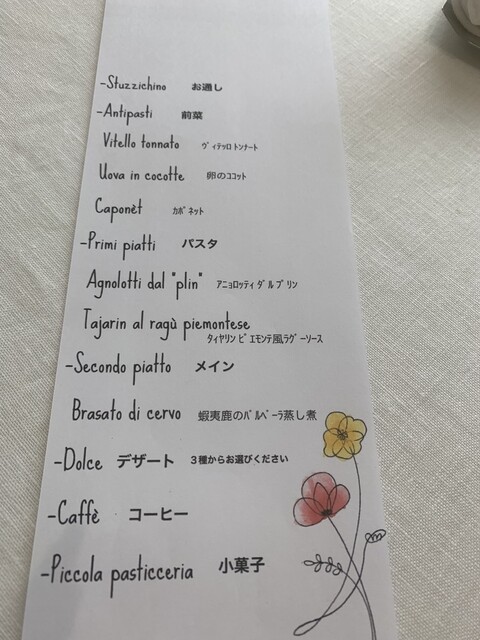 -Stuzzichino お通し
-Antipasti 前菜
Vitello tonnato ヴィテッロ トンナート
Uova in cocotte 卵のココット
Caponèt カポネット
-Primi piatti パスタ
Agnolotti dal "plin" アニョロッティ ダル プリン
Tajarin al ragù piemontese
タィヤリン ピエモンテ風ラグーソース
-Secondo piatto メイン
Brasato di cervo 蝦夷鹿のバルベーラ蒸し煮
-Dolce デザート 3種からお選びください
-Caffè コーヒー
-Piccola pasticceria 小菓子